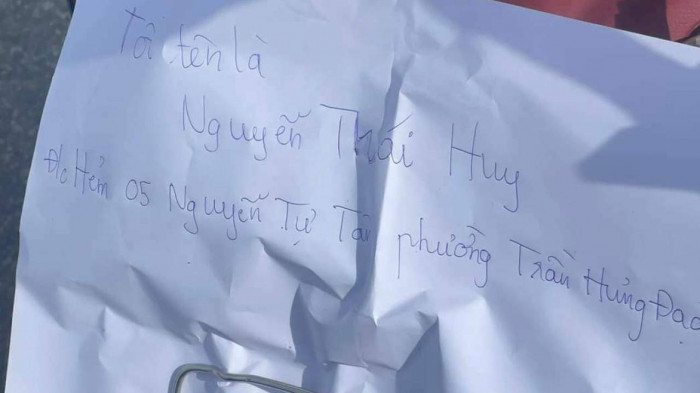 Tôi tên là
Nguyễn Thái Huy
Đ/c Hẻm 05 Nguyễn Tự Tân phường Trần Hưng Đạo